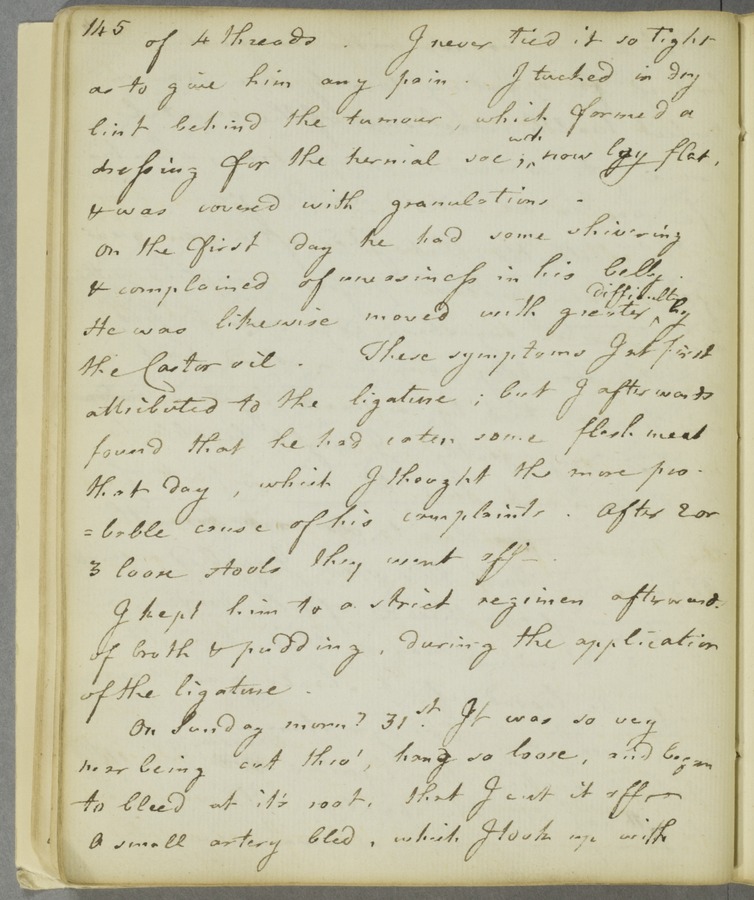 145
of 4 threads. I never tied it so tight
as to give him any pain. I tucked in dry
lint behind the tumour, which formed a
dressing for the hernial sac; wch now lay flat,
& was covered with granulations -
On the first day he had some shivering
& complained of uneasiness in his belly.
He was likewise moved with greater difficulty by
the Castor oil. These symptoms I at first
attributed to the ligature; but I afterwards
found that he had eaten some flesh meat
that day, which I thought the more pro-
=bable cause of his complaints. After 2 or
3 loose stools they went off -.
I kept him to a strict regimen afterwards
of broth & pudding, during the application
of the ligature.
On Sunday morng 31st. It was so very
near being cut thro', hang so loose, and began
to bleed at it's root, that I cut it off -
A small artery bled, which I took up with